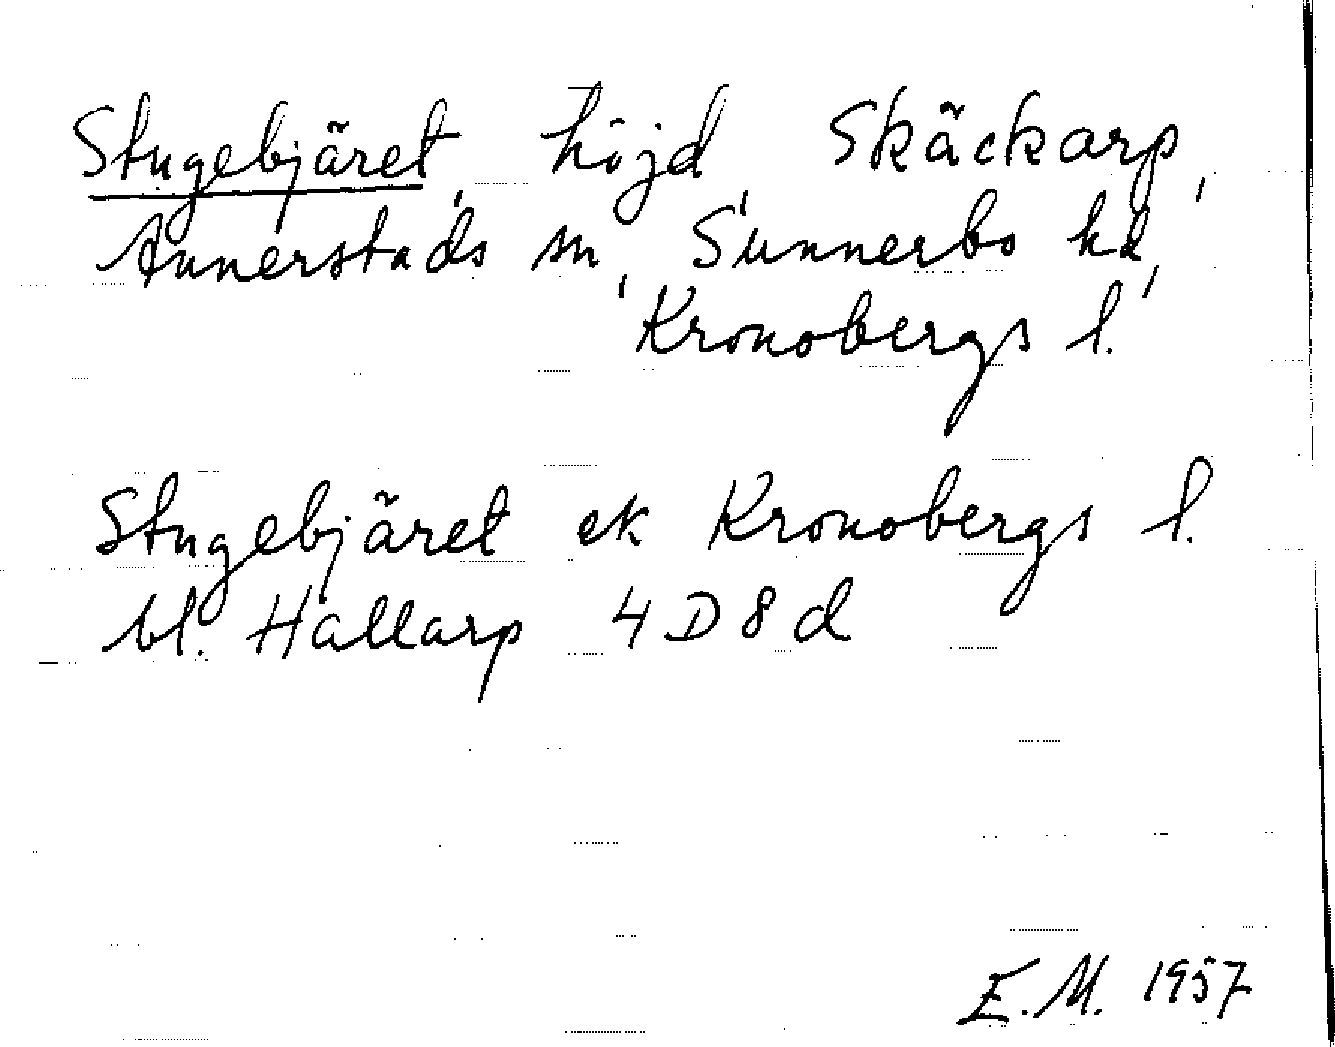 Stugebjäret, höjd, Skäckarp,
Annerstads sn, Sunnerbo hd,
Kronobergs l.
Stugebjäret ek Kronobergs l.
bl. Hallarp 4D8d
E.M. 1957